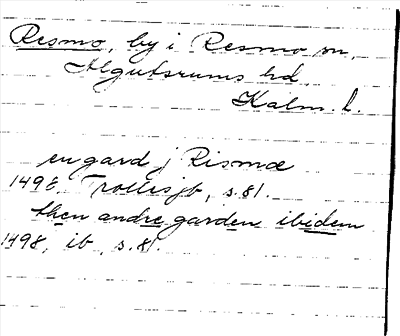 Resmo, by i Resmo sn,
Algutsrums hd
Kalm. l.
en gard j Rismæ
1498. Trolles jb, s. 81.
then andre garden ibidem
1498, ib, s. 81.